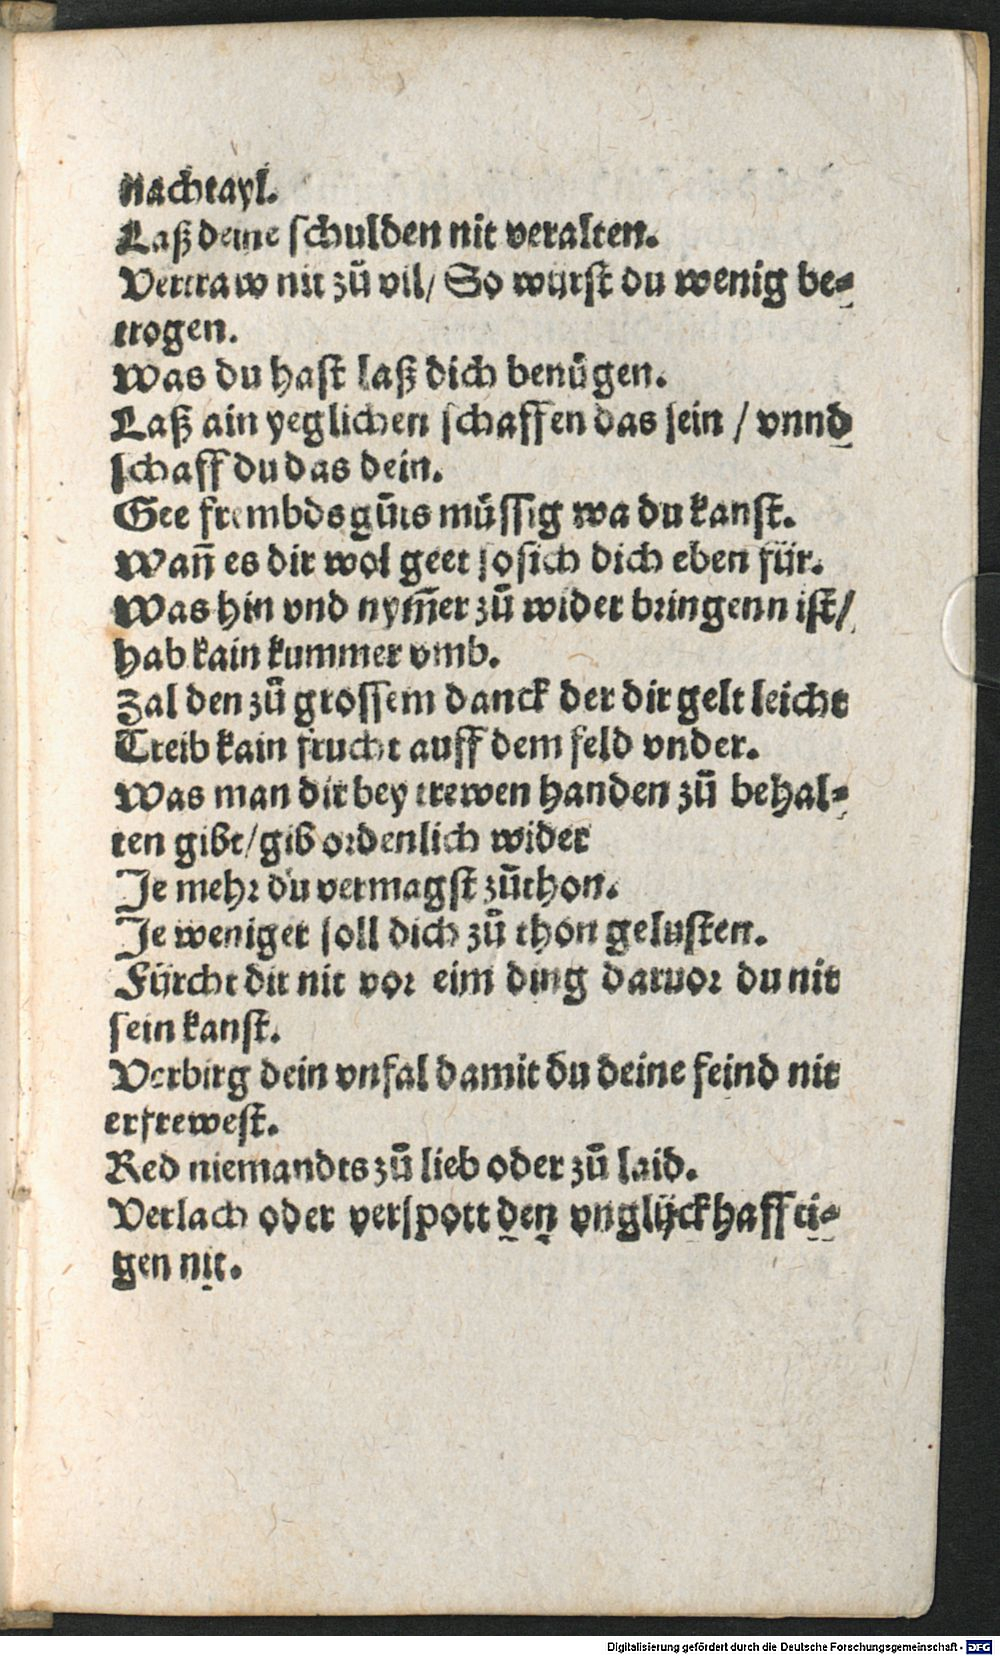 nachtayl.
Laß deine schulden nit veralten.
Vertraw nit zů vil/ So wirst du wenig be⸗
trogen.
Was du hast laß dich benügen.
Laß ain yeglichen schaffen das sein / vnnd
schaff du das dein.
Gee frembds gůts müssig wa du kanst.
Wañ es dir wol geet so sich dich eben für.
Was hin vnd nym̄er zů wider bringenn ist/
hab kain kummer vmb.
Zal den zů grossem danck der dir gelt leicht
Treib kain frucht auff dem feld vnder.
Was man dir bey trewen handen zů behal⸗
ten gibt/gib ordenlich wider
Je mehr du vermagst zůthon.
Je weniger soll dich zů thon gelusten.
Fürcht dir nit vor eim ding daruor du nit
sein kanst.
Verbirg dein vnfal damit du deine feind nit
erfrewest.
Red niemandts zů lieb oder zů laid.
Verlach oder verspott den vnglückhaffti⸗
gen nit.
Digitalisierung gefördert durch die Deutsche Forschungsgemeinschaft - DFG